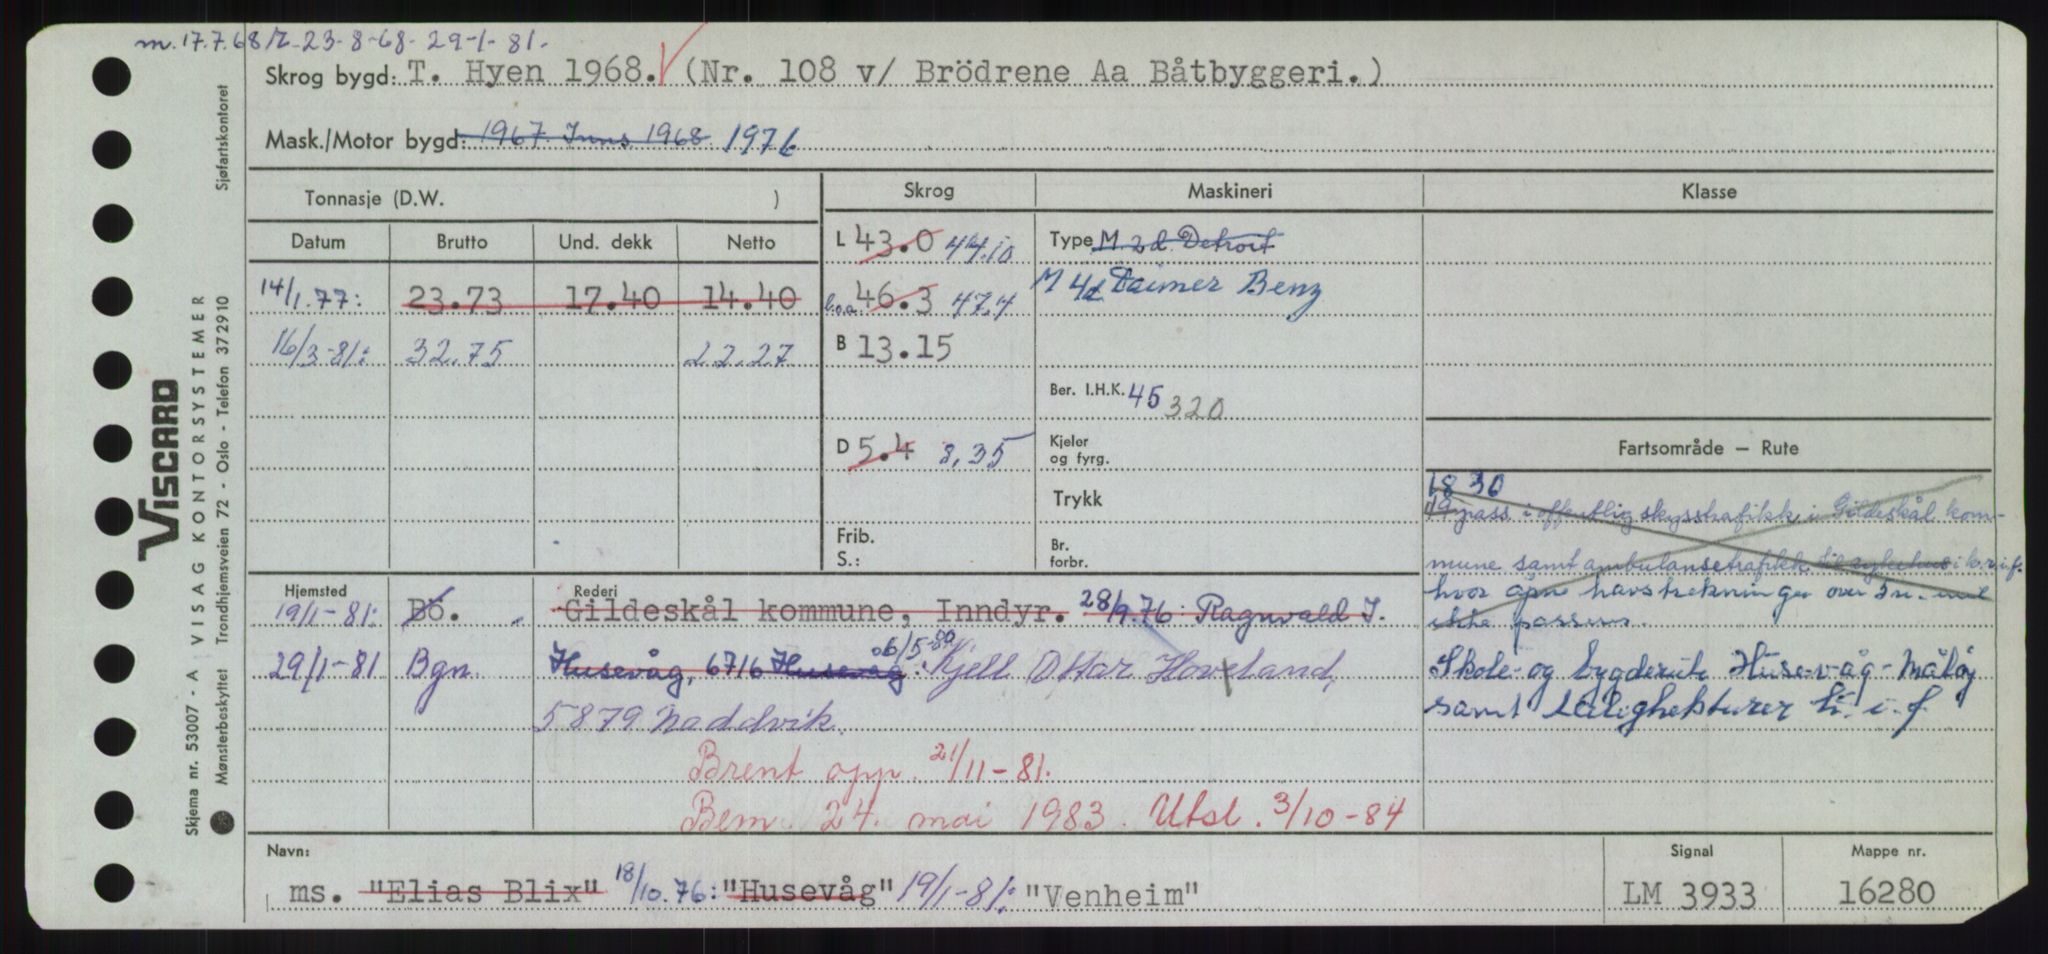 m. 17.7.68/Z-23-8-68- 29-1-81.
Skrog bygd: T. Hyen 1968. (Nr. 108 v/ Brödrene Aa Båtbyggeri.)
Mask./Motor bygd: 1967 Inns 1968 1976
Tonnasje (D.W. )
Skrog
Maskineri
Klasse
Datum Brutto Und. dekk Netto
L 43.0 44.10
Type M. 2 d. Detroit
14/1.77: 23.73 17.40 14.40
b.o.a. 46.3 47.4
M 4d. Daimer Benz
16/3-81: 32.75 22.27
B 13.15
Ber. I.H.K. 45 320
D 5.4 8,35
Kjeler
og fyrg.
Trykk
Frib.
S.:
Br.
forbr.
Fartsområde – Rute
18 30
19 pass i offentlig skysstrafikk i Gildeskål kom-
mune samt ambulansetrafikk til sykehus i k.v.i.f.
hvor åpne havstrekninger over 5 n. mil
ikke passeres.
Skole- og bygderute Husevåg-Måløy
samt leilighetsturer k. i. f.
Hjemsted
Rederi
19/1-81: Bö. Gildeskål kommune, Inndyr. 28/9.76: Ragnvald J.
29/1-81 Bgn. Husevåg, 6716 Husevåg. 6/5-80 Kjell Ottar Hoveland,
5879 Naddvik.
Brent opp. 21/11-81.
Bem. 24. mai 1983. Utsl. 3/10-84
Navn:
ms. "Elias Blix" 18/10.76: "Husevåg" 19/1-81: "Venheim"
Signal
LM 3933
Mappe nr.
16280
VISCARD
Skjema nr. 53007 - A VISAG KONTORSYSTEMER
Mønsterbeskyttet Trondhjemsveien 72 - Oslo - Telefon 372910 Sjøfartskontoret